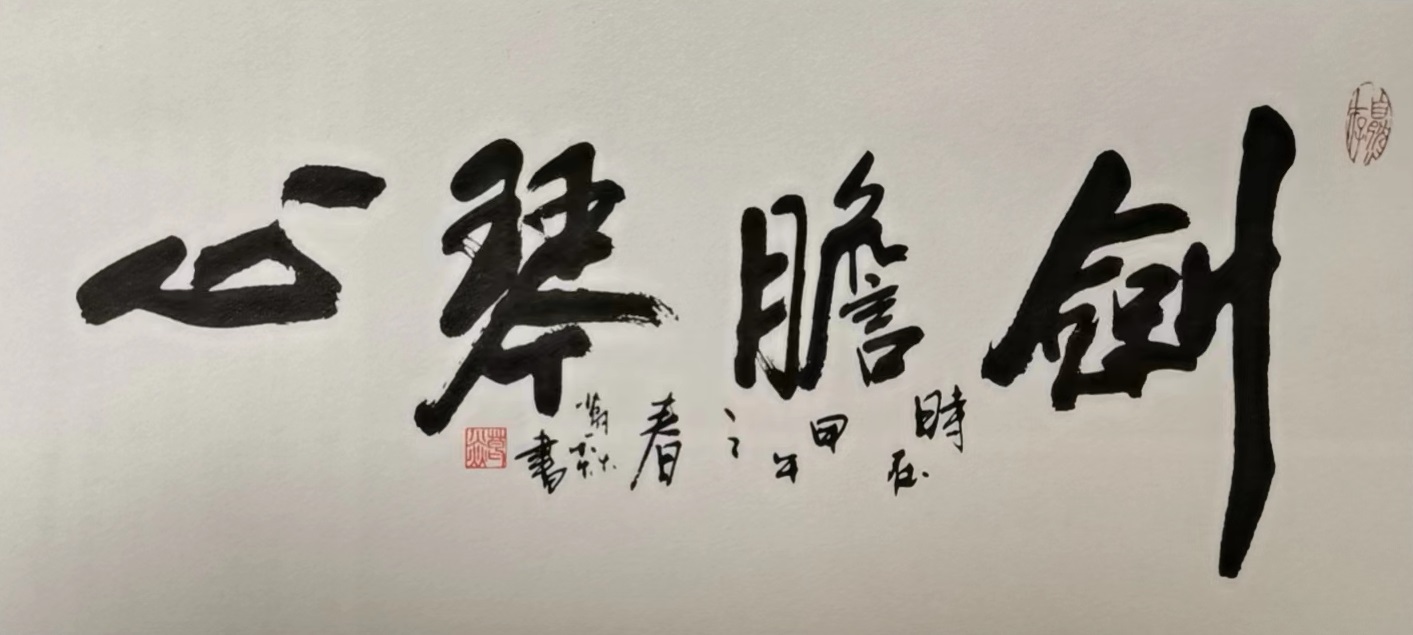 劍膽琴心
時在甲午之春
書